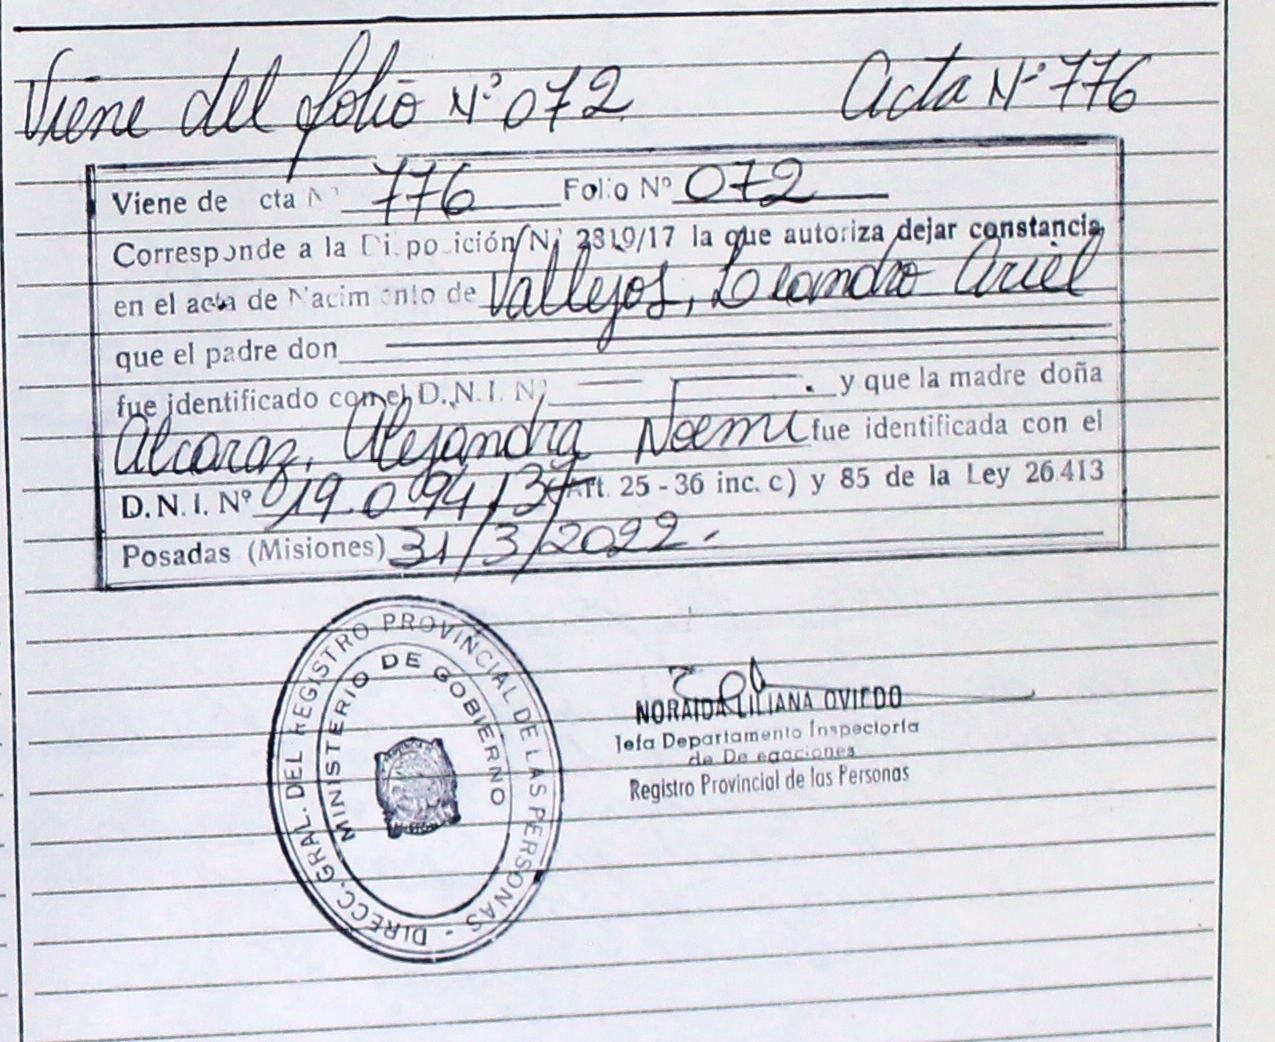 Viene del folio Nº 072 Acta Nº 776
Viene de cta Nº 776 Folio Nº 072
Corresponde a la Di po ición Nº 2819/17 la que autoriza dejar constancia
en el acta de Nacim nto de Vallejos, Leandro Ariel
que el padre don
fue identificado con el D.N.I. Nº . y que la madre doña
Alcaraz, Alejandra Noemi fue identificada con el
D.N.I. Nº 19.094.137 (Art. 25 - 36 inc. c) y 85 de la Ley 26.413
Posadas (Misiones) 31/3/2022.
DIRECC. GRAL. DEL REGISTRO PROVINCIAL DE LAS PERSONAS -
MINISTERIO DE GOBIERNO
NORAIDA LILIANA OVIEDO
Jefa Departamento Inspectoría
de De egaciones
Registro Provincial de las Personas